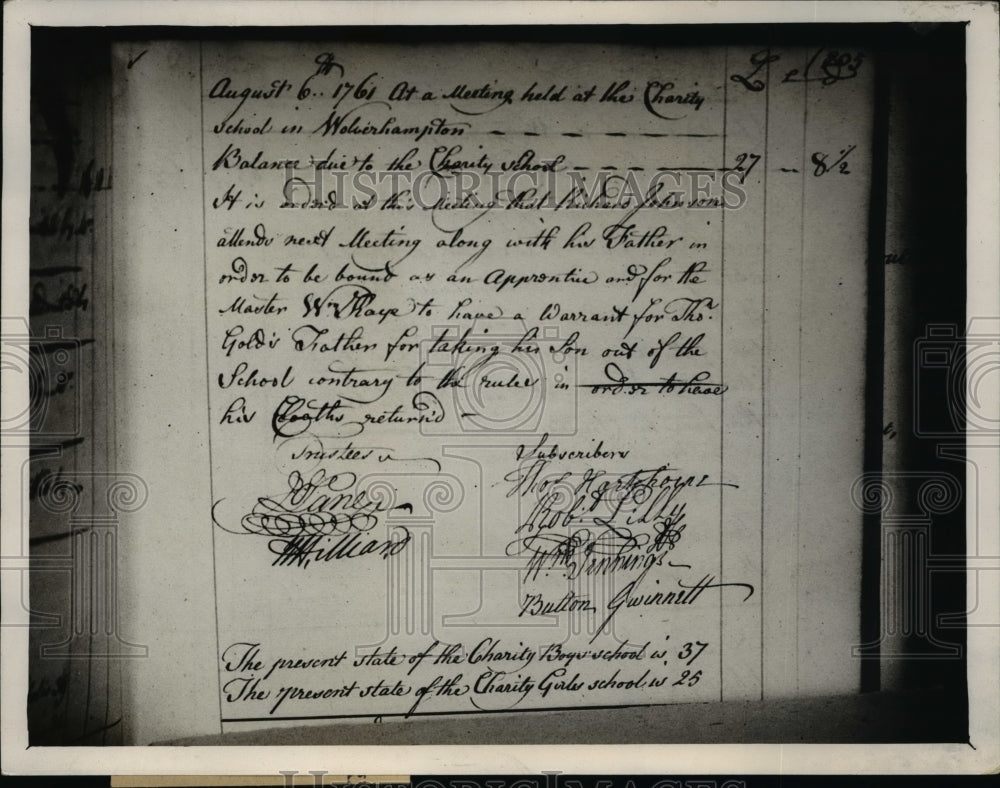 August 6th 1761 At a Meeting held at the Charity
school in Wolverhampton
Balance due to the Charity school 27 8 1/2
It is orderd at this Meeting that Richard Johnson
attends next Meeting along with his Father in
order to be bound as an Apprentice and for the
Master Wm to have a Warrant for Thos.
Gold's Father for taking his Son out of the
School contrary to the rules in order to have
his Cloaths return'd
Trustees
Subscribers
Robt. Lilly
Wm. Jennings
Button Gwinnett
The present state of the Charity Boys school is 37
The present state of the Charity Girls school is 25
HISTORIC IMAGES
HISTORIC IMAGES